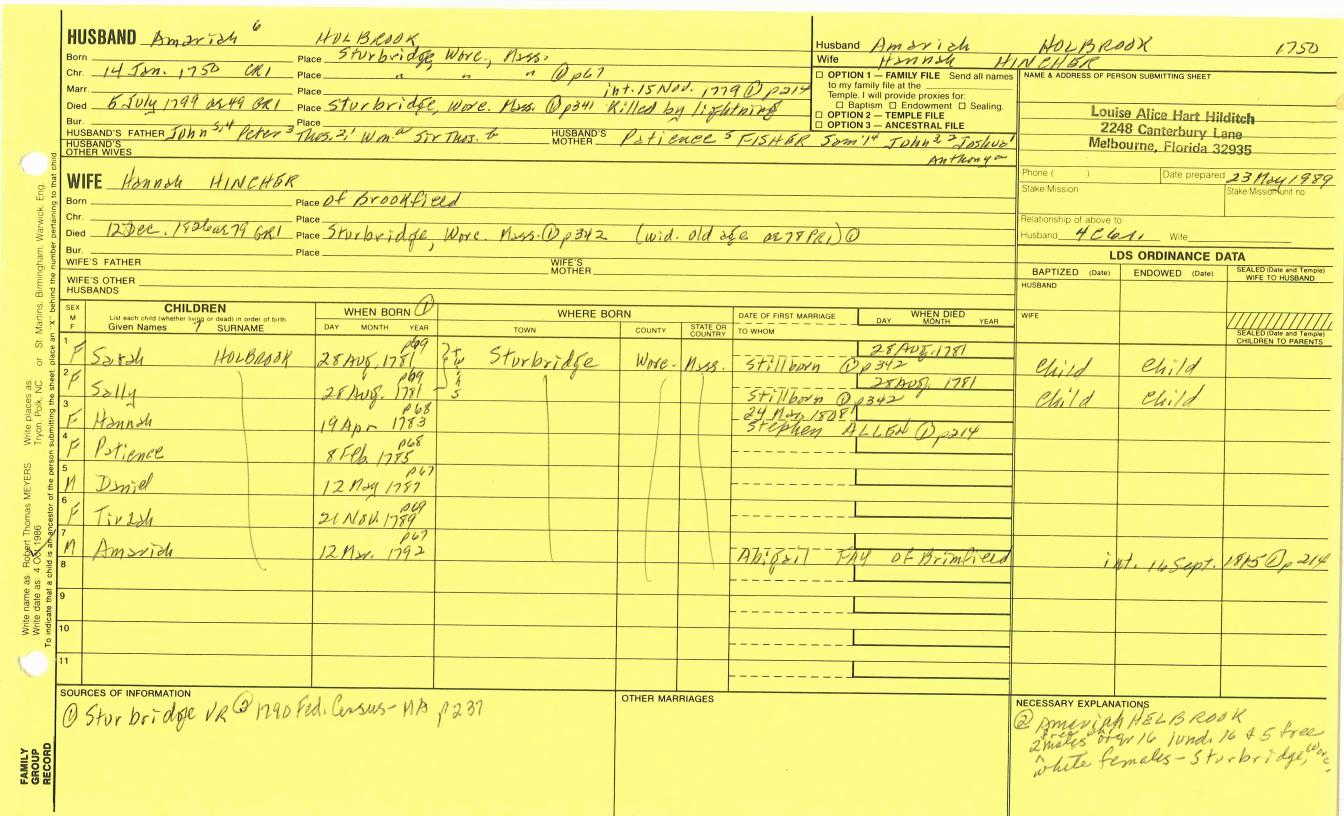 HUSBAND Amariah 6 HOLBROOK
Born Place Sturbridge, Worc., Mass.
Chr. 14 Jan. 1750 GR1 Place " " " ① p67
Marr. Place int. 15 Nov. 1779 ① p214
Died 5 July 1799 ae 49 GR1 Place Sturbridge, Worc. Mass. ① p341 Killed by lightning
Bur. Place
HUSBAND'S FATHER John 5,4 Peter 3 Thos. 2,1 Wm a Sir Thos. b HUSBAND'S MOTHER Patience 5 FISHER Sam'l 4 John 3, 2 Joshua 1
Anthony a
HUSBAND'S OTHER WIVES
WIFE Hannah HINCHER
Born Place of Brookfield
Chr. Place
Died 12 Dec. 1826 ae 79 GR1 Place Sturbridge, Worc. Mass. ① p342 (wid. old age ae 78 PR1) ①
Bur. Place
WIFE'S FATHER WIFE'S MOTHER
WIFE'S OTHER HUSBANDS
Husband Amariah HOLBROOK 1750
Wife Hannah HINCHER
☐ OPTION 1 — FAMILY FILE Send all names
to my family file at the
Temple. I will provide proxies for:
☐ Baptism ☐ Endowment ☐ Sealing.
☐ OPTION 2 — TEMPLE FILE
☐ OPTION 3 — ANCESTRAL FILE
NAME & ADDRESS OF PERSON SUBMITTING SHEET
Louise Alice Hart Hilditch
2248 Canterbury Lane
Melbourne, Florida 32935
Phone ( ) Date prepared 23 May 1989
Stake Mission Stake Mission unit no
Relationship of above to:
Husband Wife
LDS ORDINANCE DATA
BAPTIZED (Date) ENDOWED (Date) SEALED (Date and Temple) WIFE TO HUSBAND
HUSBAND
WIFE
SEALED (Date and Temple) CHILDREN TO PARENTS
SEX M F
CHILDREN
List each child (whether living or dead) in order of birth.
Given Names 7 SURNAME
WHEN BORN ①
DAY MONTH YEAR
WHERE BORN
TOWN COUNTY STATE OR COUNTRY
DATE OF FIRST MARRIAGE
TO WHOM
WHEN DIED
DAY MONTH YEAR
1 F Sarah HOLBROOK 28 Aug. 1781 p69 Twins Sturbridge Worc. Mass. 28 Aug. 1781
Stillborn ① p342 Child Child
2 F Sally 28 Aug. 1781 p69 28 Aug. 1781
Stillborn ① p342 Child Child
3 F Hannah 19 Apr 1783 p68 24 Mar. 1808
Stephen ALLEN ① p214
4 F Patience 8 Feb. 1785 p68
5 M Daniel 12 May 1787 p67
6 F Tirzah 21 Nov. 1789 p69
7 M Amariah 12 Mar. 1792 p67 Abigail FAY of Brimfield int. 16 Sept. 1815 ① p214
8
9
10
11
SOURCES OF INFORMATION
① Sturbridge VR ② 1790 Fed. Census - MA p237
OTHER MARRIAGES
NECESSARY EXPLANATIONS
② Amariah HELBROOK
2 free white males over 16 1 und. 16 & 5 free
white females - Sturbridge, Worc.
Write name as: Robert Thomas MEYERS Write places as: Tryon, Polk, NC or St Martins, Birmingham, Warwick, Eng.
Write date as: 4 Oct 1986
To indicate that a child is an ancestor of the person submitting the sheet, place an "X" behind the number pertaining to that child
FAMILY GROUP RECORD